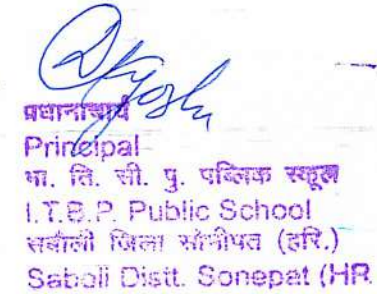 प्रधानाचार्य
Principal
भा. ति. सी. पु. पब्लिक स्कूल
I.T.B.P. Public School
सबौली जिला सोनीपत (हरि.)
Saboli Distt. Sonepat (HR